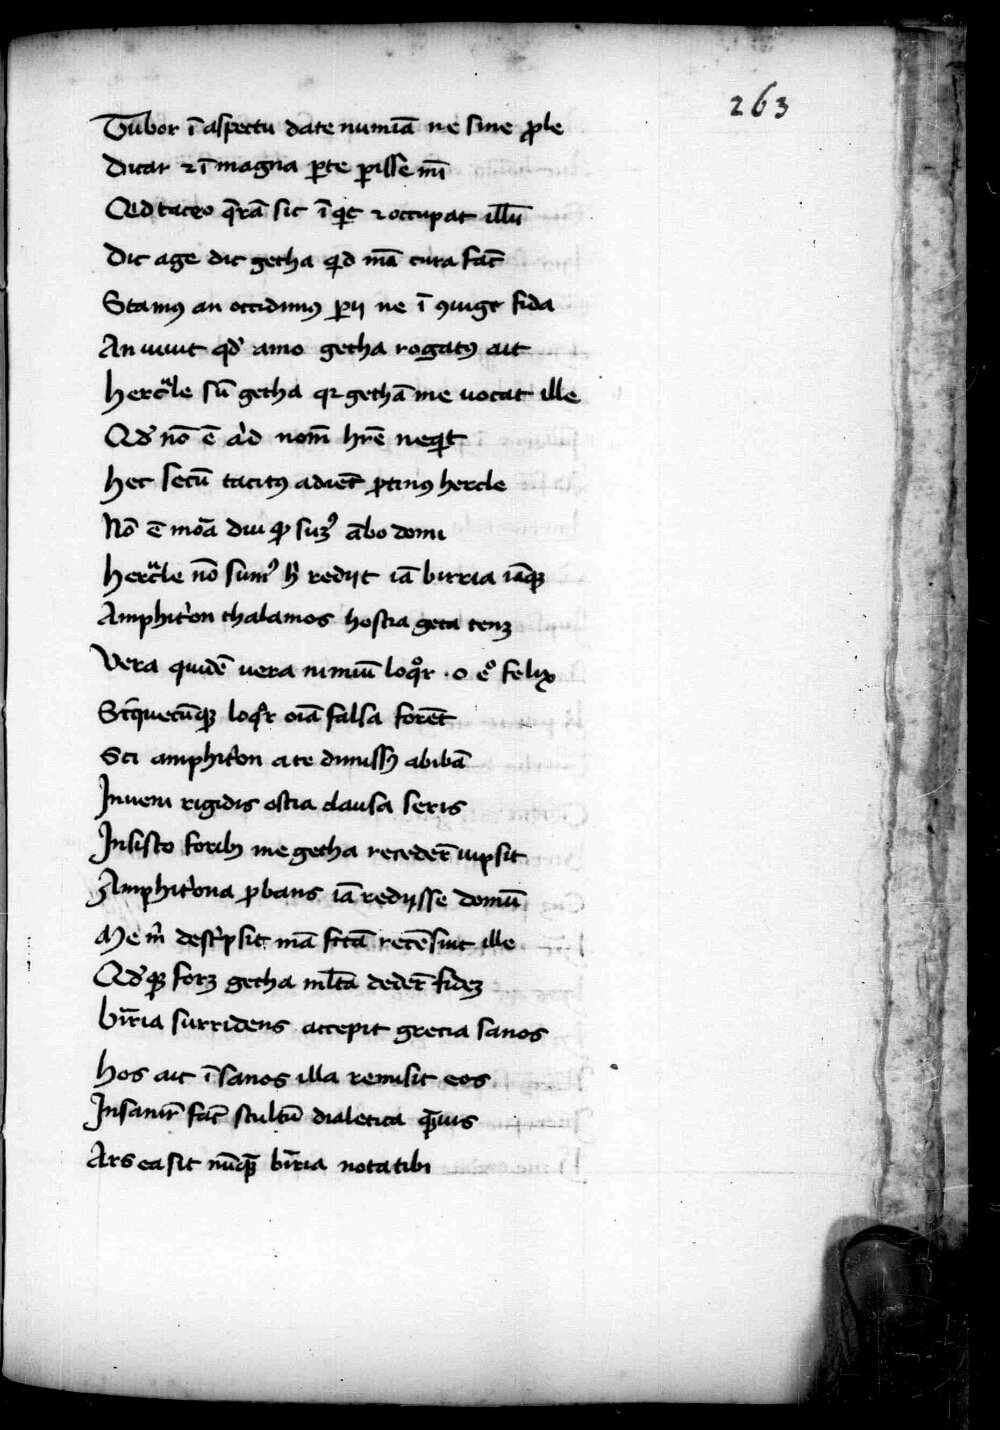 263
Turbor ī aspectu date numiā ne sine ꝓle
Dicar ⁊ ī magna ꝑte ꝑisse mī
Qd taceo q̄rā sic īqͥt ⁊ occupat illū
Dic age dic getha qͥd mā cura fac̄
Stamꝰ an occidimꝰ ꝑij ne ī ꝯiuge fida
An uiuit qd' amo getha rogatꝰ ait
Hercͣle sū getha qꝛ gethā me uocat ille
Qd' nō ē aͥd nom̄ hr̄e neqͥt
Hec secū tacitꝰ adiec̄ ꝓtinꝰ hercle
Nō ē mōa diu sūꝫ ābo domi
Hercͣle nō sumꝰ h̄ redijt iā birria iāqꝫ
Amphitͥon thalamos hostia geta tenꝫ
Vera quidē uera nimiū loqͦr · o eͦ felix
Si q̄cūqꝫ loqͦr oīa falsa forēt
Sci amphitͥon a te dimissꝰ abibā
Inueni rigidis ostia clausa seris
Insisto foribꝫ me getha receder̄ iupsit
Amphitͥona ꝓbans iā redijsse domū
Me m̄ descͥpsit mā fc̄tā recēsuit ille
Qd'qꝫ forꝫ getha ml̄ta deder̄ fideꝫ
bir̄ia surridens accepit grecia sanos
Hos ait īsanos illa remisit eos
Insanir̄ fac̄ stultū dialetica quͣis
Ars ea sit nūqͣ bir̄ia nota tibi